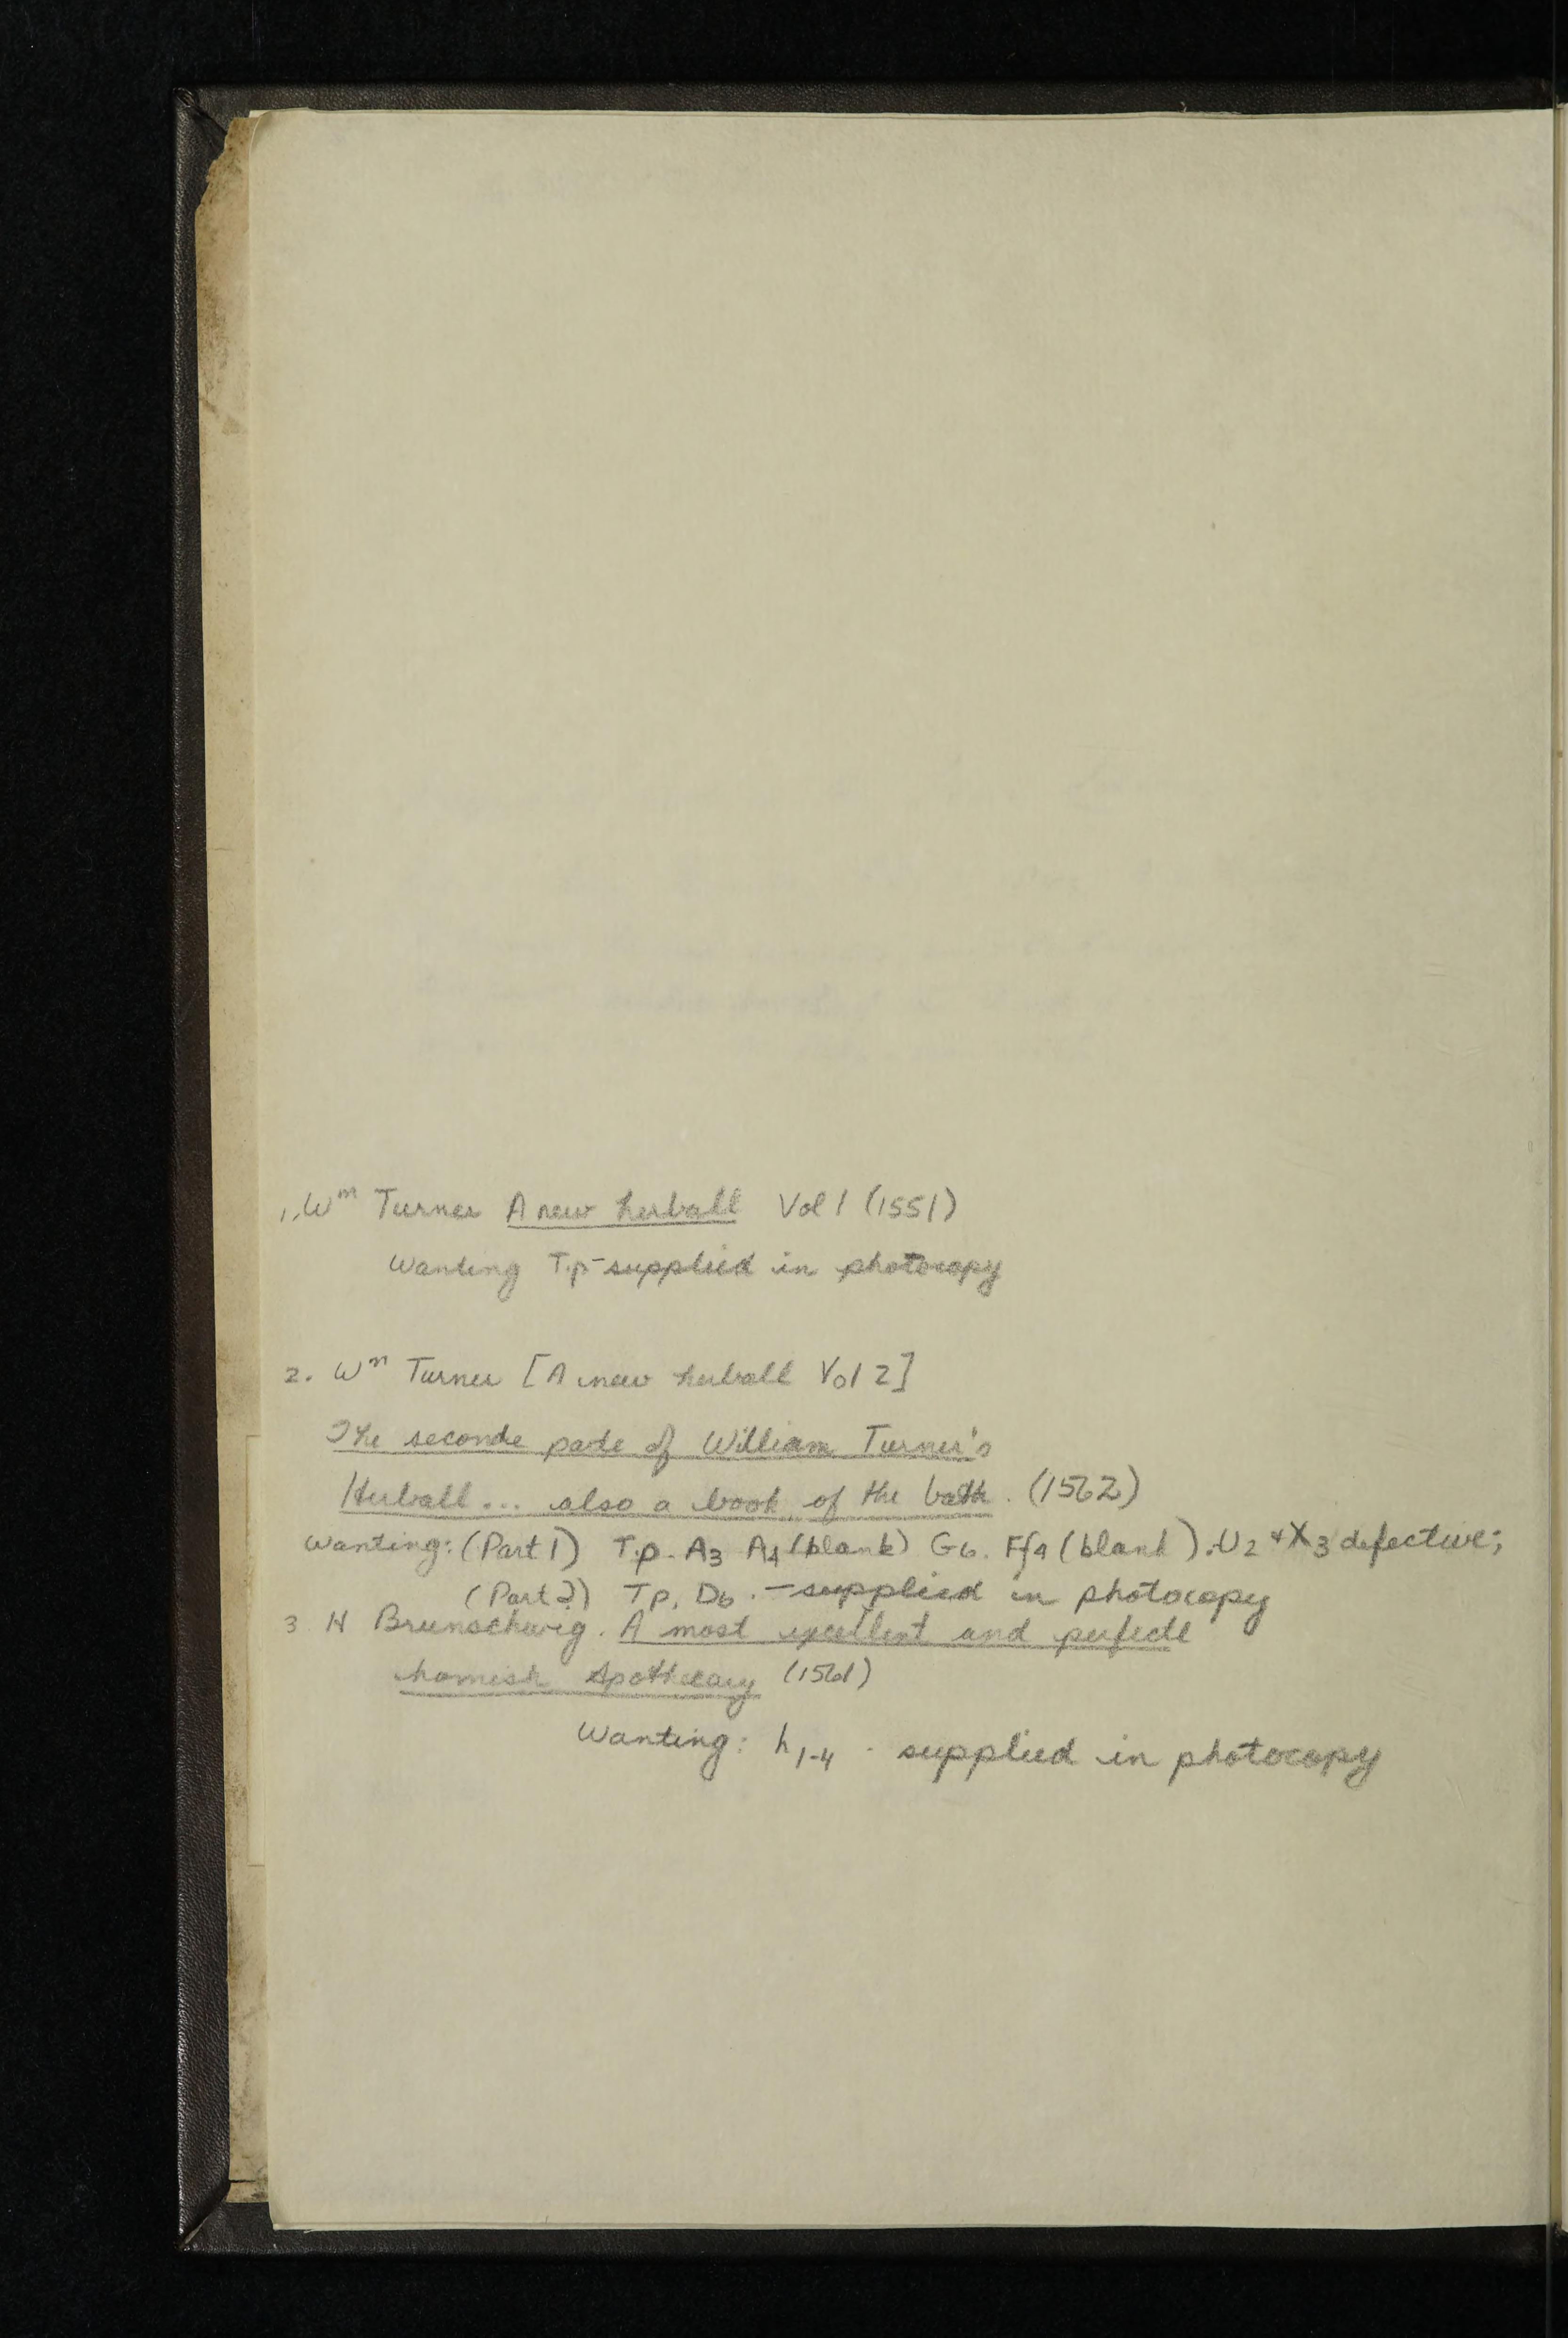 1. Wm Turner A new herball Vol 1 (1551)
Wanting T.p - supplied in photocopy
2. Wm Turner [A new herball Vol 2]
The seconde parte of William Turner's
Herball... also a book of the bath. (1562)
Wanting: (Part 1) T.p. A3 A4 (blank) G6. Ff4 (blank). U2 + X3 defective;
(Part 2) Tp. D6. - supplied in photocopy
3 H Brunschwig. A most excellent and perfecte
homish Apothecary (1561)
Wanting: h1-4 - supplied in photocopy